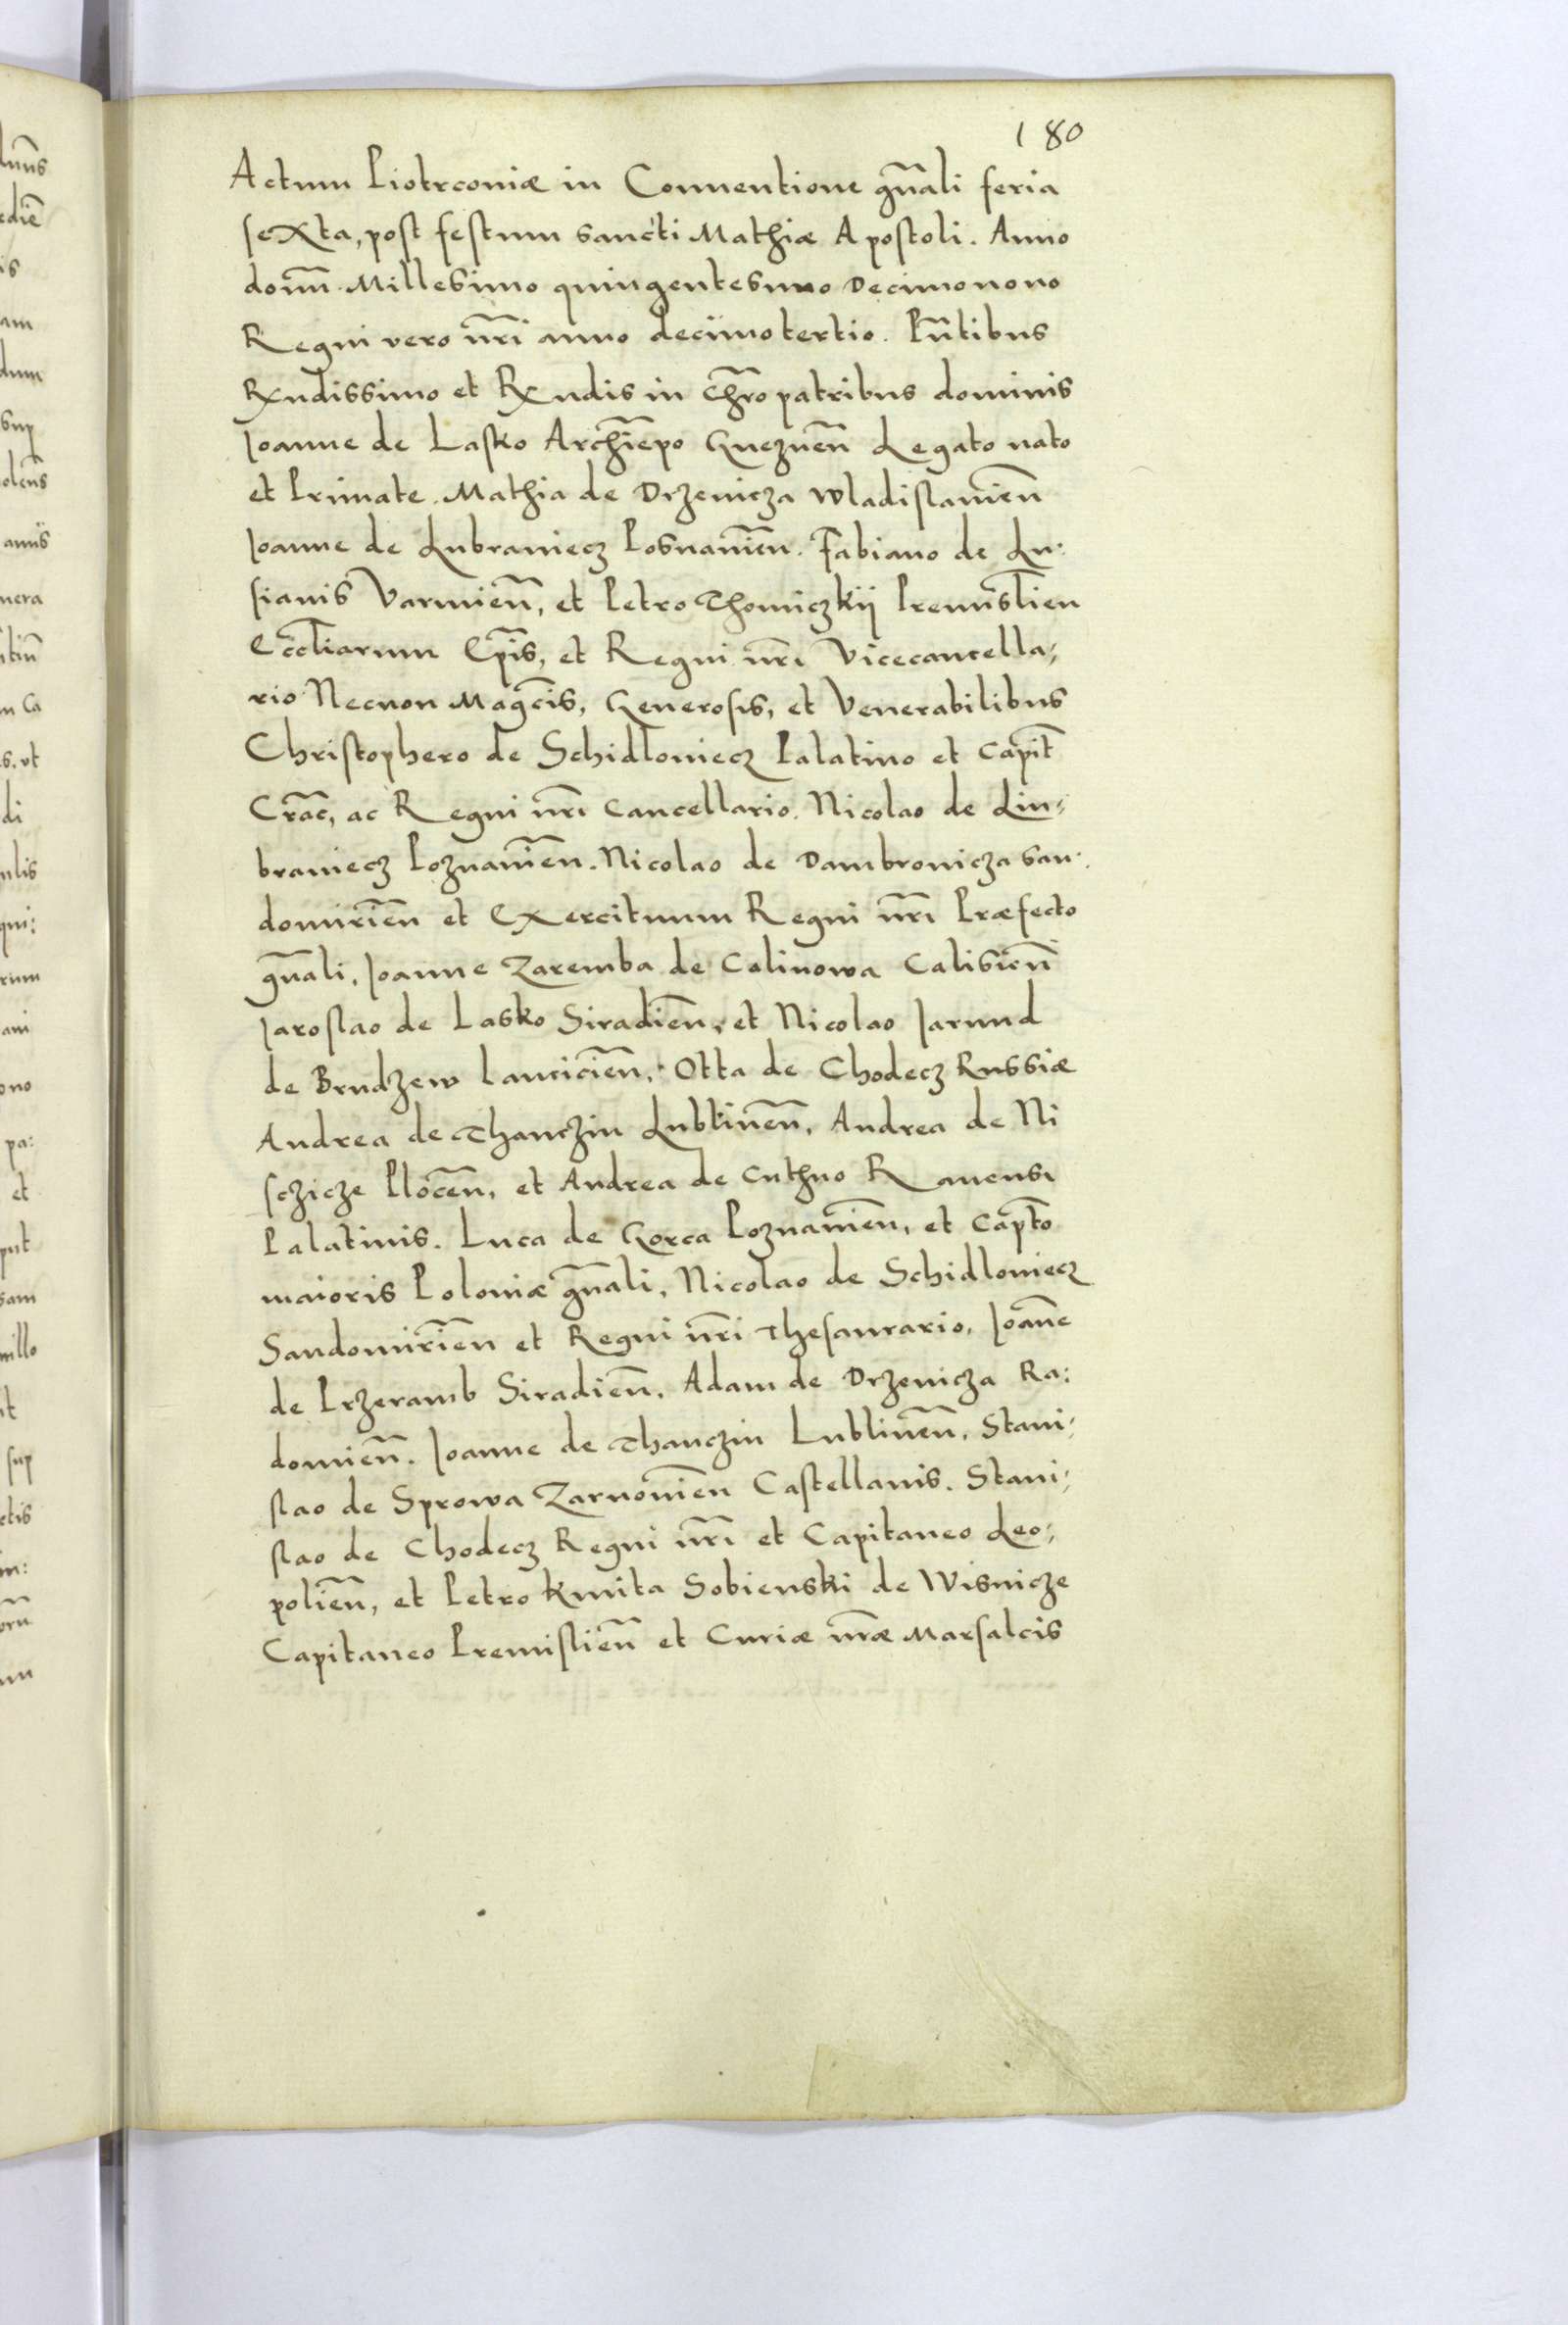 180
Actum Piotrconiæ in Conuentione gn̄ali feria
sexta, post festum sancti Mathiæ Apostoli. Anno
domī Millesimo quingentesimo Decimonono
Regni vero nr̄i anno decimotertio. Pn̄tibus
Rx̄ndissimo et Rx̄ndis in Chr̄o patribus dominis
Ioanne de Lasko Archīepo Gneznēn Legato nato
et Primate. Mathia de Drzeuicza Wladislauiēn
Ioanne de Lubraniecz Posnaniēn. Fabiano de Lu:
sianis Varmiēn, et Petro Thomiczkij Premisliēn
Eccl̄iarum Ep̄is, et Regni nr̄i Vicecancella,
rio Necnon Maḡcis, Generosis, et Venerabilibus
Christophero de Schidlouiecz Palatino et Capit̄
Crac̄, ac Regni nr̄i Cancellario. Nicolao de Lu,
braniecz Poznaniēn. Nicolao de Dambrouicza San:
domiriēn et Exercituum Regni nr̄i Præfecto
gn̄ali, Ioanne Zaremba de Calinowa Calisiēn
Iaroslao de Lasko Siradiēn, et Nicolao Iarund
de Brudzew Lanciciēn, Otta de Chodecz Russiæ
Andrea de Thanczin Lublinēn, Andrea de Ni
sczicze Plocēn, et Andrea de Cuthno Rauensi
Palatinis. Luca de Gorca Poznaniēn, et Capt̄o
maioris Poloniæ gn̄ali, Nicolao de Schidlouiecz
Sandomiriēn et Regni nr̄i Thesaurario, Ioān̄e
de Przeramb Siradiēn, Adam de Drzeuicza Ra:
domiēn. Ioanne de Thanczin Lublinēn, Stani,
slao de Sprowa Zarnouiēn Castellanis. Stani,
slao de Chodecz Regni nr̄i et Capitaneo Leo,
poliēn, et Petro Kmita Sobienski de Wisnicze
Capitaneo Premisliēn et Curiæ nr̄æ Marsalcis